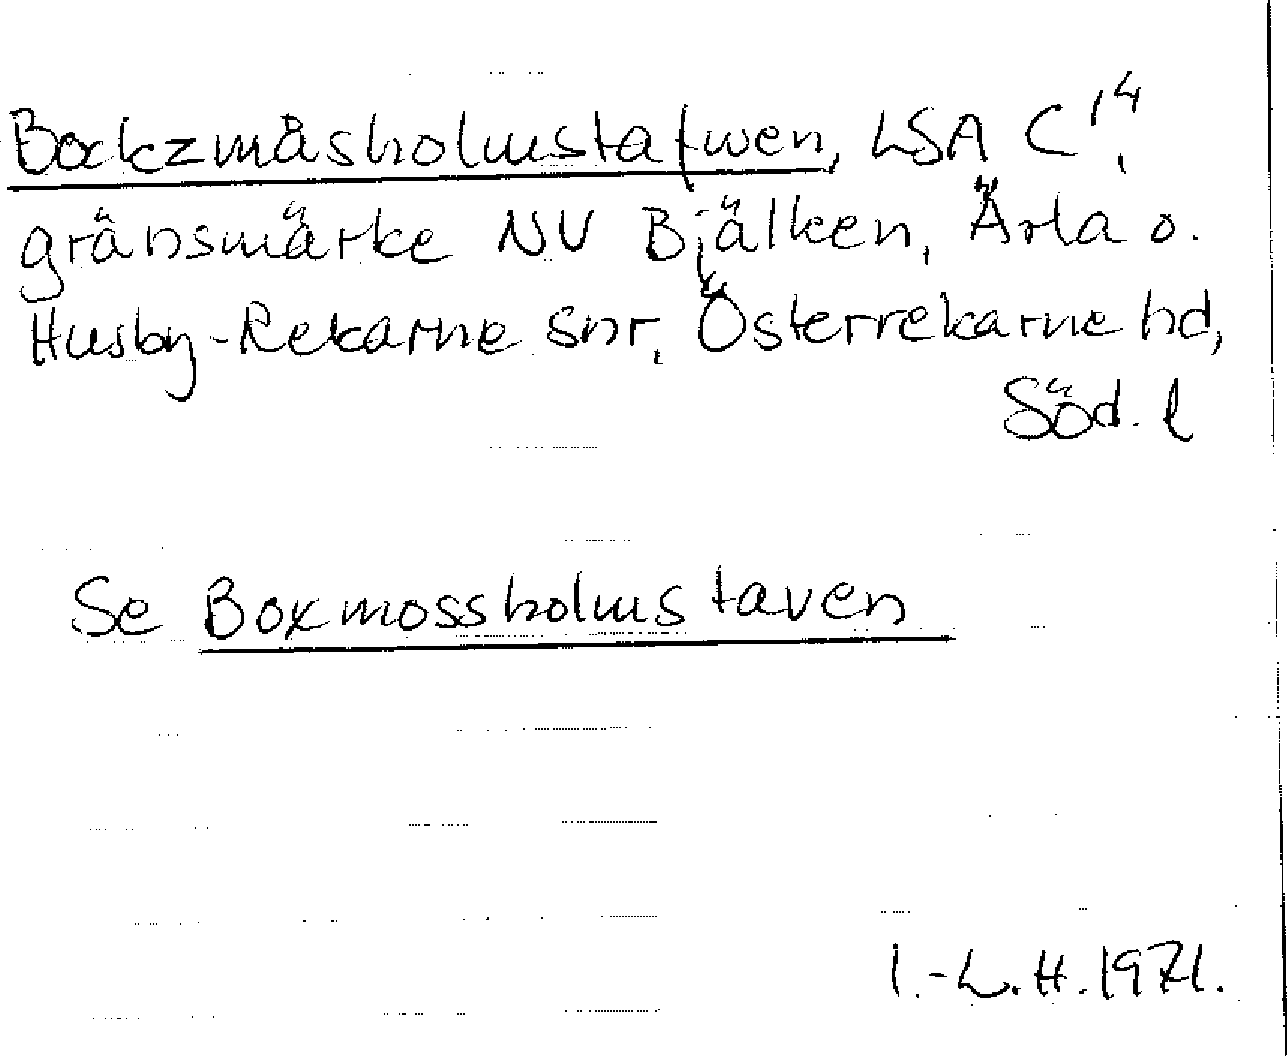 Bockzmåsholmstafwen, LSA C¹⁴,
gränsmärke NV Bjälken, Ärla o.
Husby-Rekarne snr, Österrekarne hd,
Söd. l
Se Boxmossholmstaven
I.-L.H. 1971.